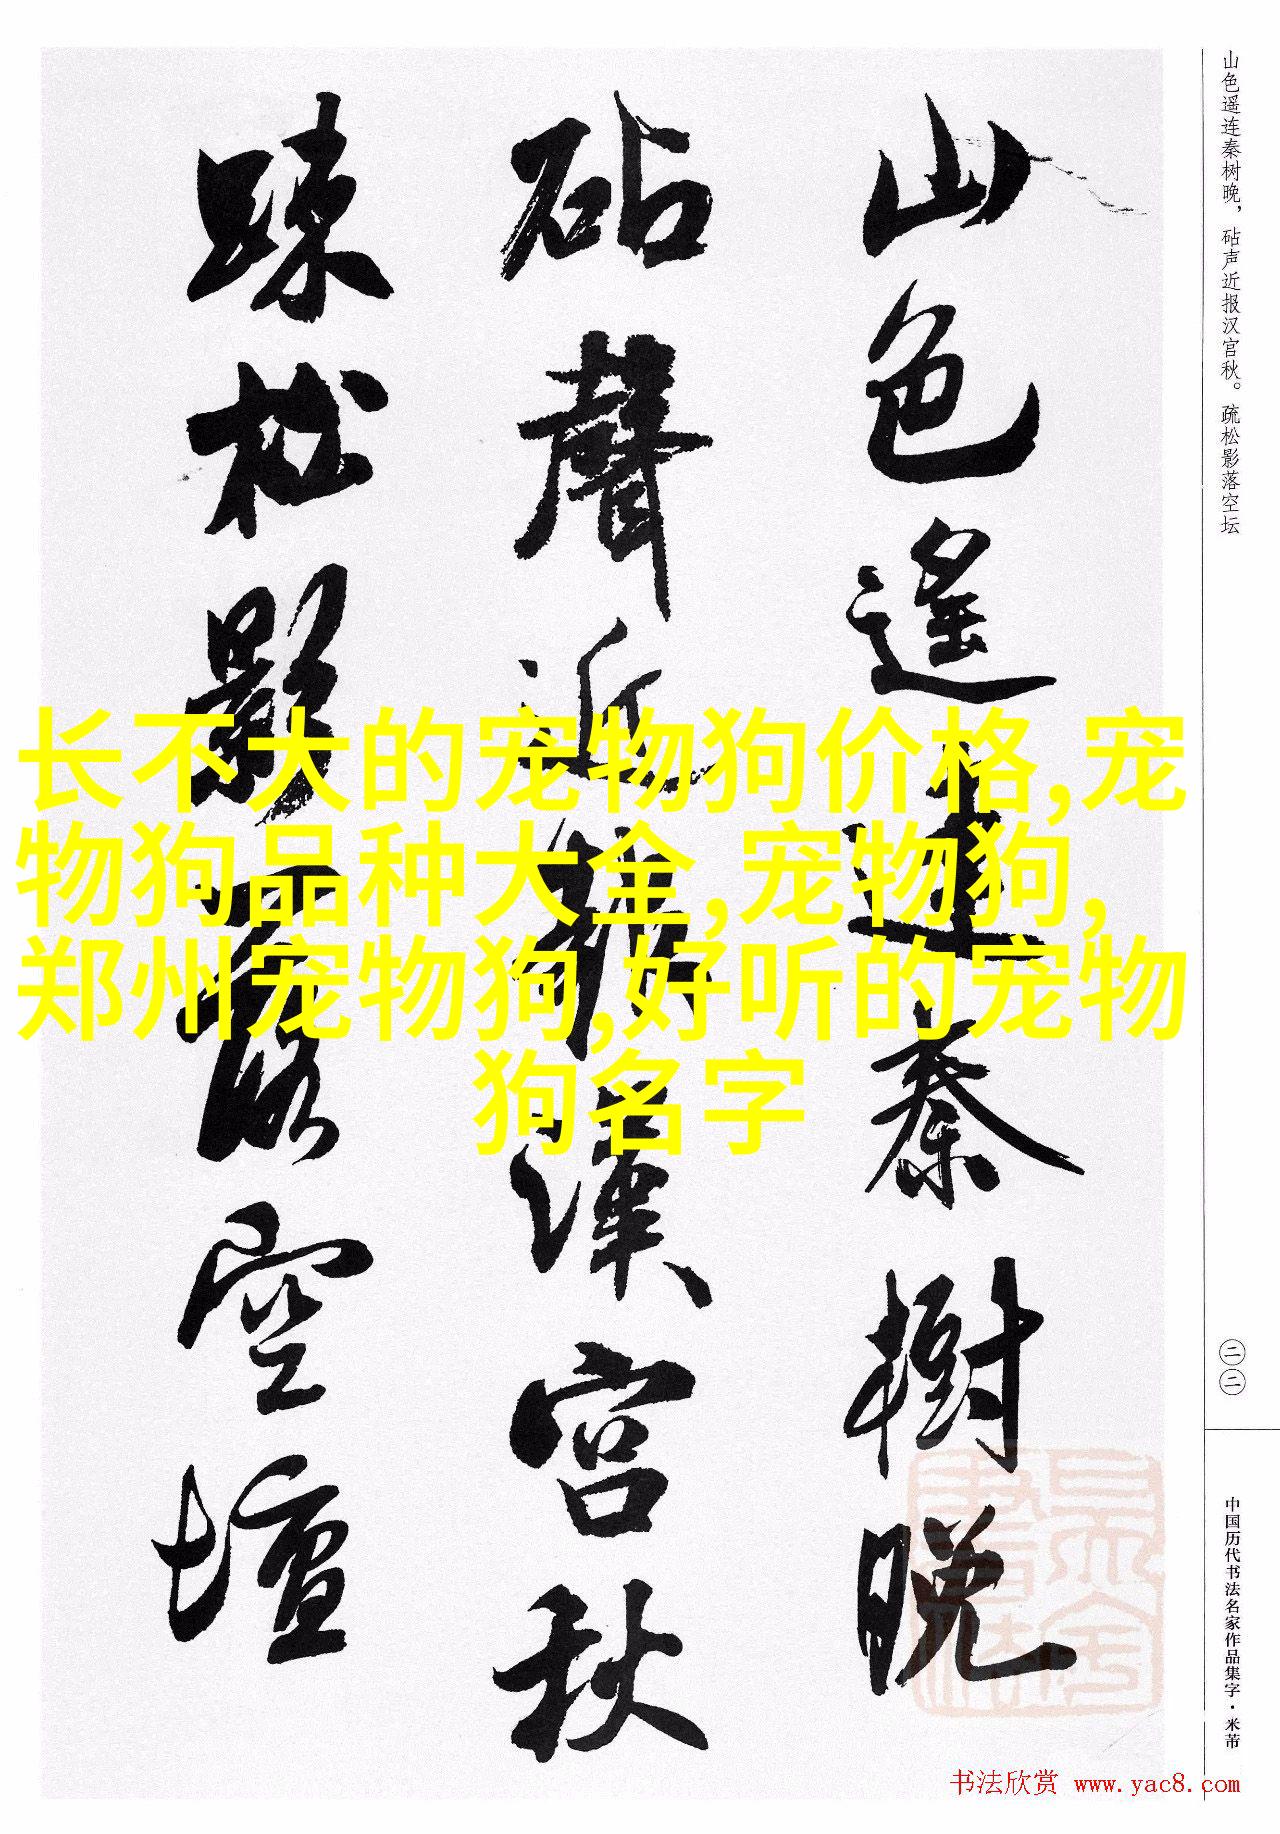 山色遥连秦树晚，砧声近报汉宫秋。疏松影落空坛
山色遙連秦樹晚
砧聲近報漢宮秋
踈松影落空壇
长不大的宠物狗价格,宠
物狗品种大全,宠物狗,
郑州宠物狗,好听的宠物
狗名字
二二
中国历代书法名家作品集字·米芾
书法欣赏 www.yac8.com